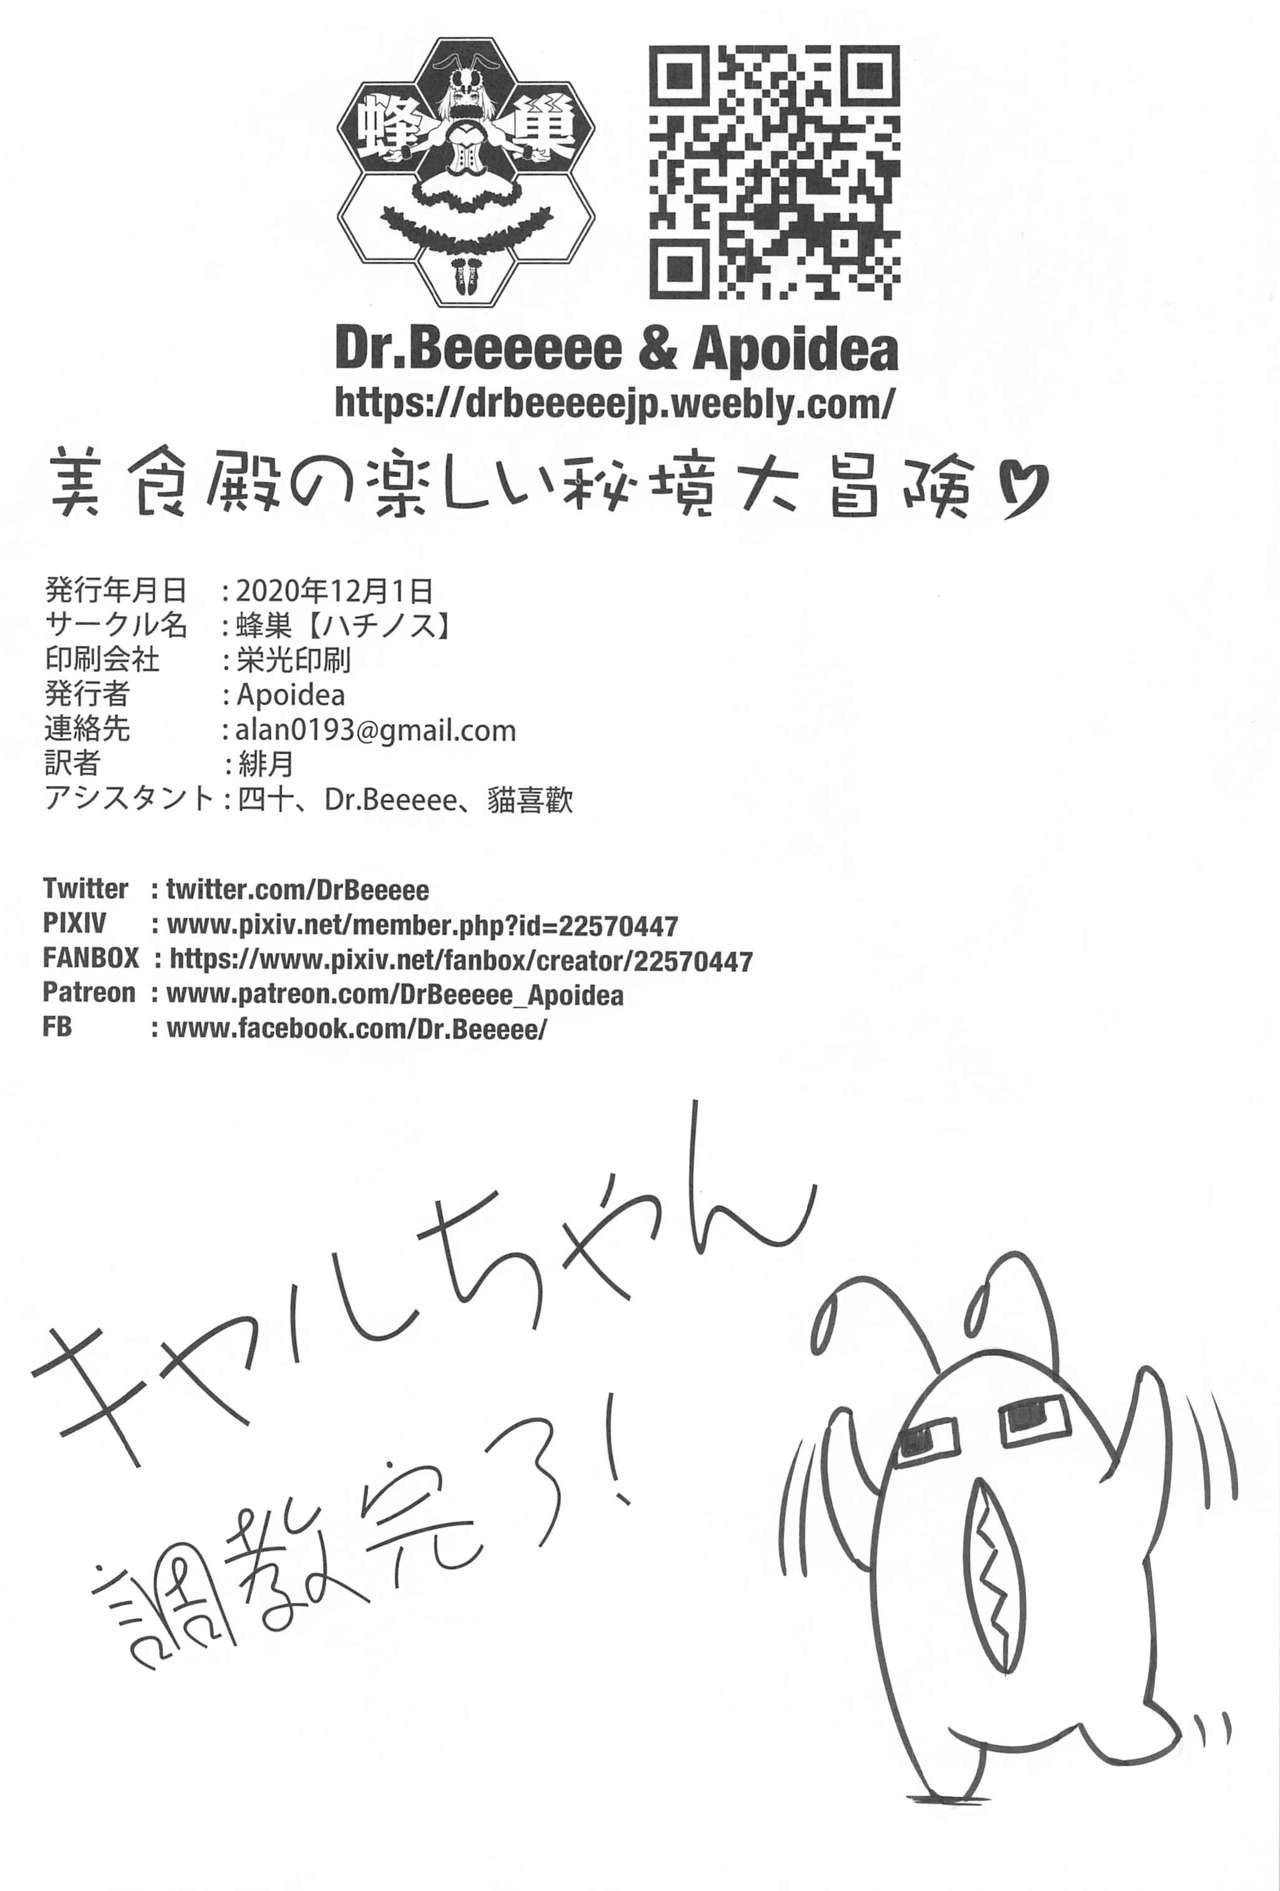 蜂巣
Dr.Beeeeee & Apoidea
https://drbeeeeejp.weebly.com/
美食殿の楽しい秘境大冒険♡
発行年月日 : 2020年12月1日
サークル名 : 蜂巣【ハチノス】
印刷会社 : 栄光印刷
発行者 : Apoidea
連絡先 : alan0193@gmail.com
訳者 : 緋月
アシスタント : 四十、Dr.Beeeee、貓喜歡
Twitter : twitter.com/DrBeeeee
PIXIV : www.pixiv.net/member.php?id=22570447
FANBOX : https://www.pixiv.net/fanbox/creator/22570447
Patreon : www.patreon.com/DrBeeeee_Apoidea
FB : www.facebook.com/Dr.Beeeee/
キャルちゃん
調教完了!